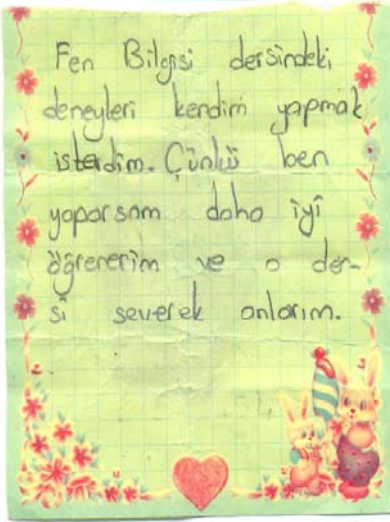 Fen Bilgisi dersindeki
deneyleri kendim yapmak
isterdim. Çünkü ben
yaparsam daha iyi
öğrenerim ve o der-
si severek anlarım.